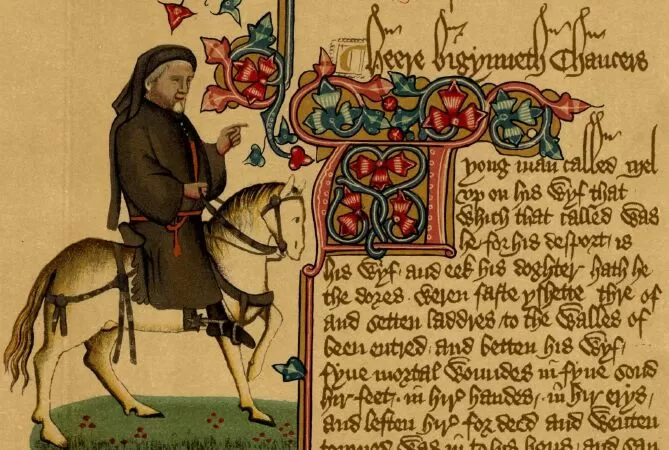 Heere bigynneth Chaucers
A yong man called Mel
vp on his wyf that
which that called was
he for his desport is
his wyf and eek his doghter hath he
the dores weren faste yshette thre of
and setten laddres to the walles of
been entred and betten his wyf
fyue mortal woundes in fyue sond
hir feet in hir handes in hir erys
and leften hir for deed and wenten
torned was in to his hous and